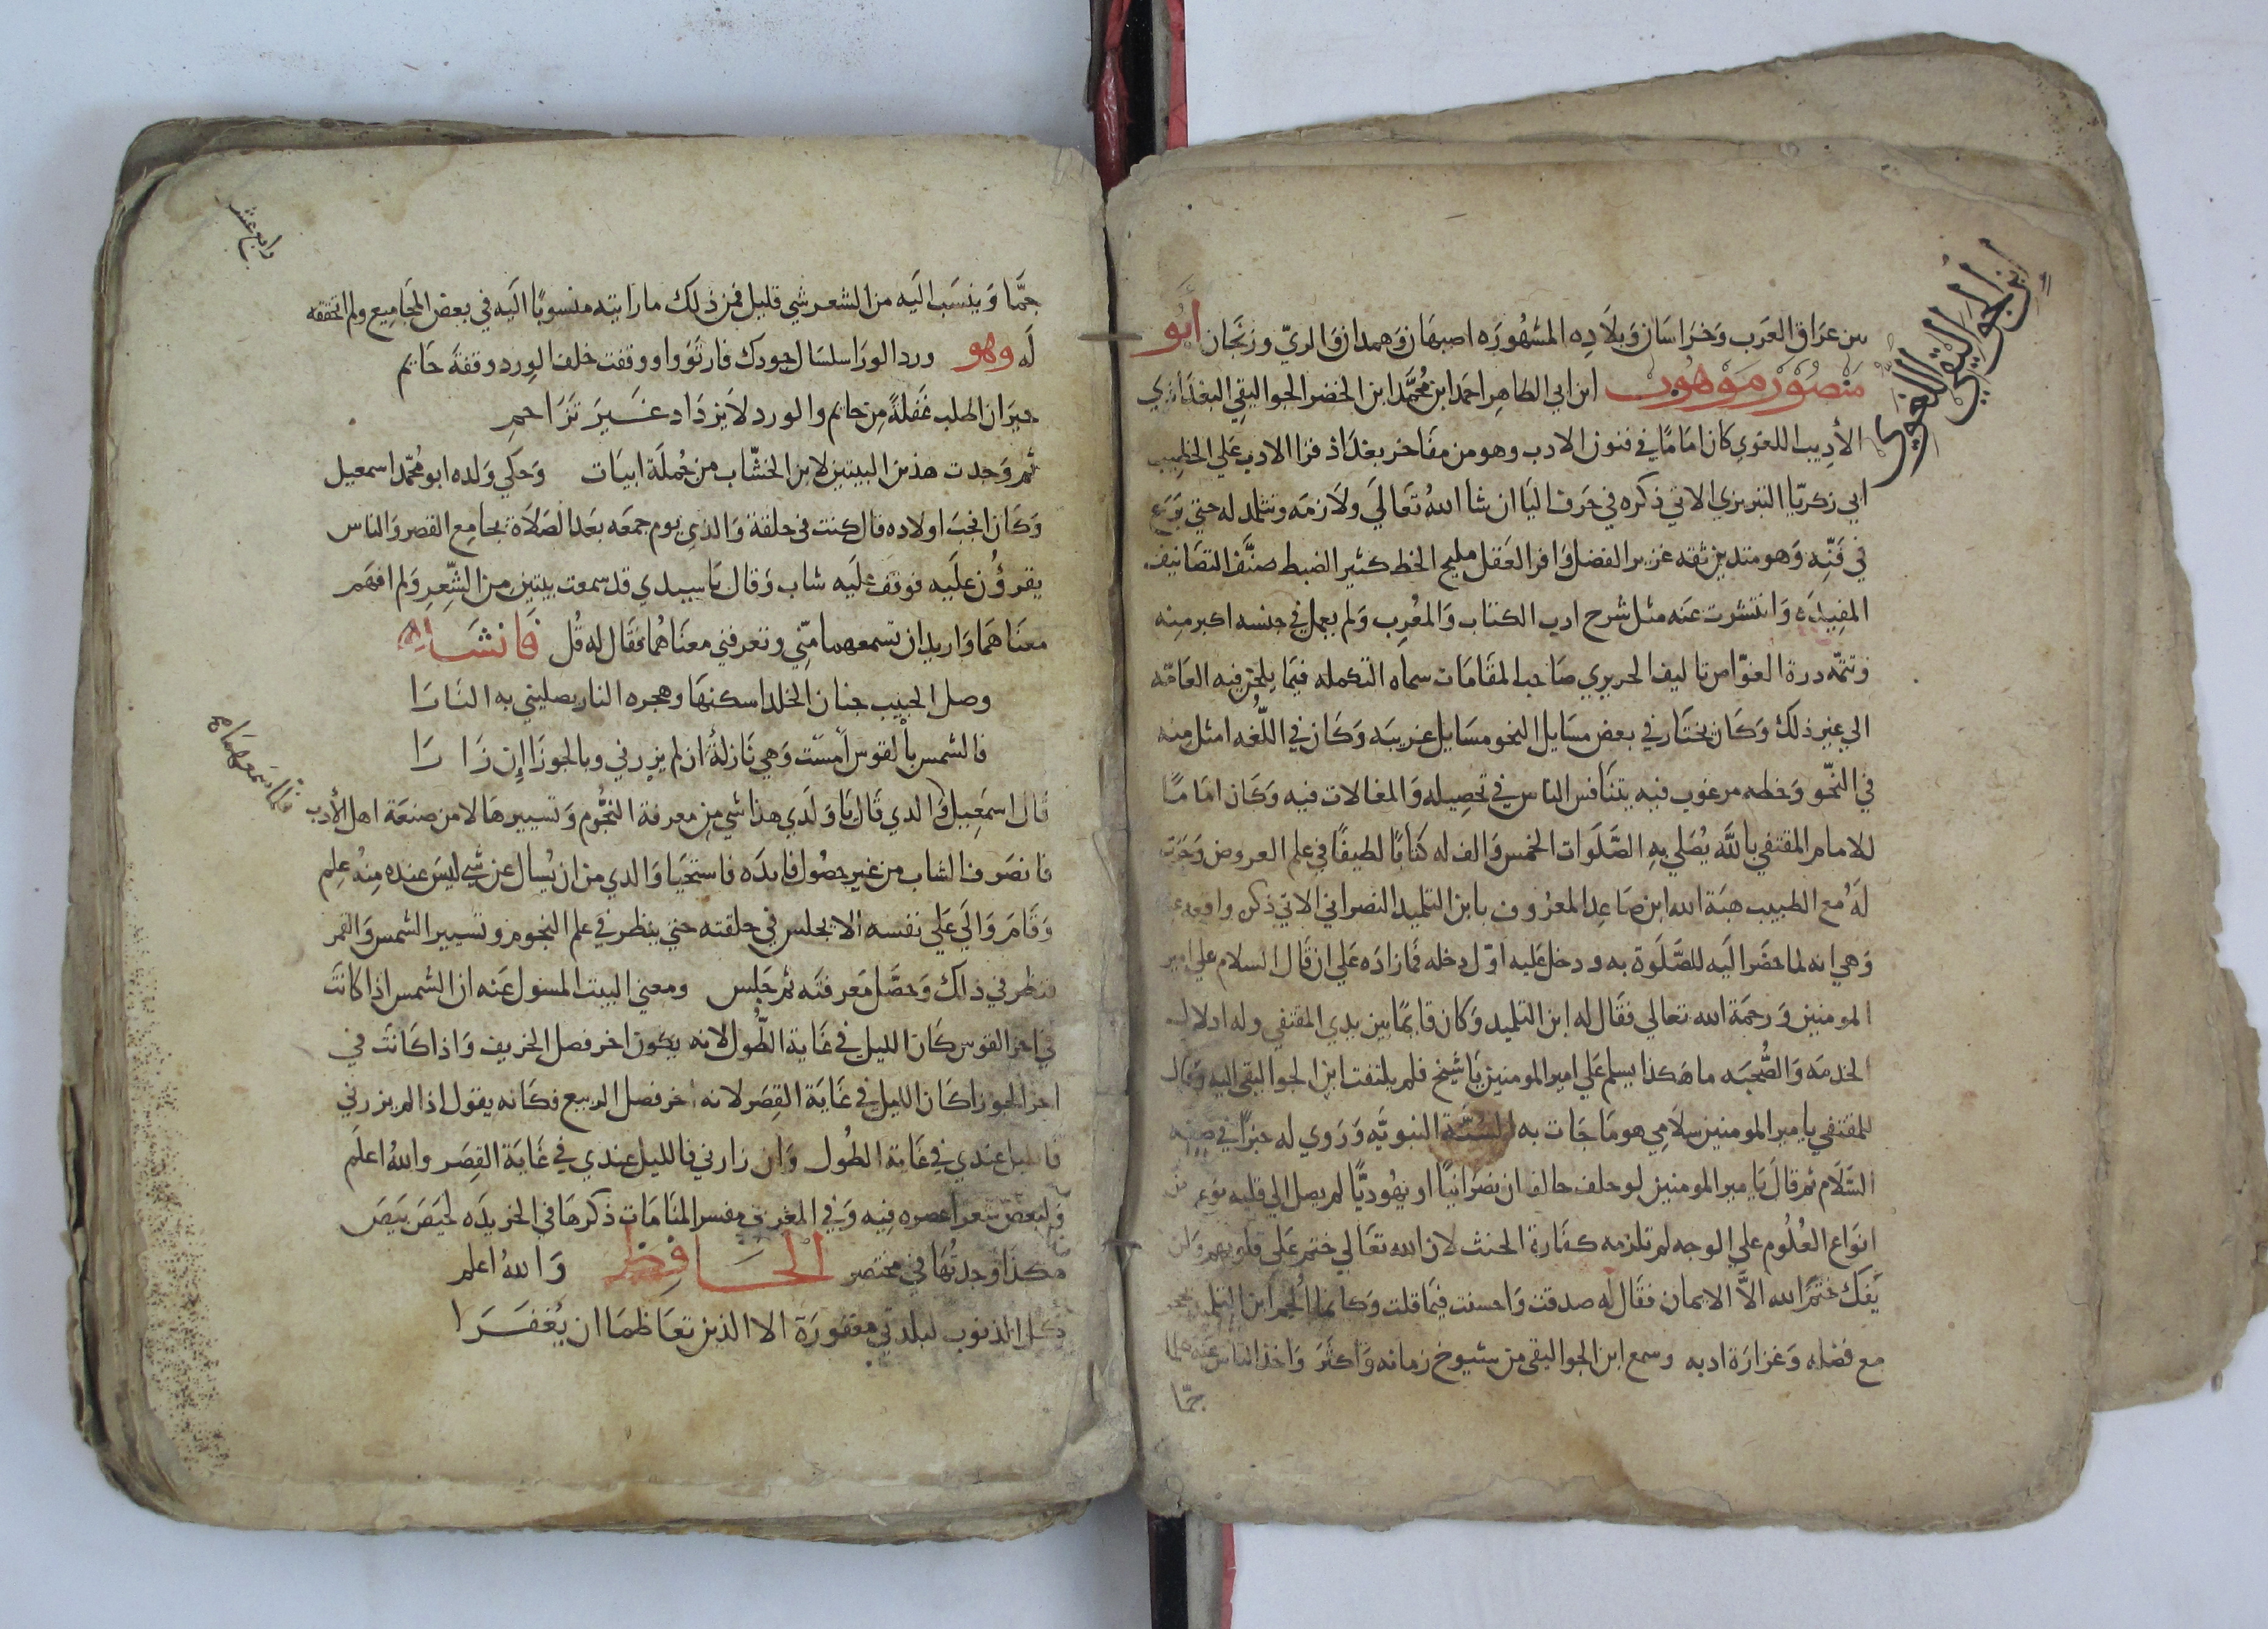 ابن الجواليقي اللغوي
من عراق العرب وخراسان وبلاده المشهوره اصبهان وهمدان والري وزنجان أبو
منصور موهوب ابن ابي الطاهر احمد ابن محمد ابن الخضر الجواليقي البغداذي
الأديب اللغوي كان امامًا في فنون الادب وهو من مفاخر بغداذ قرا الادب علي الخطيب
ابي زكريا التبريزي الاتي ذكره في حرف اليا ان شا الله تعالي ولازمه وتتلمذ له حتي برع
في فنه وهو متدين ثقه غزير الفضل وافر العقل مليح الخط كثير الضبط صنف التصانيف
المفيده وانتشرت عنه مثل شرح ادب الكتاب والمعرب ولم يعمل في جنسه اكبر منه
وتتمه درة الغواص تاليف الحريري صاحب المقامات سماه التكمله فيما يلحن فيه العامه
الي غير ذلك وكان يختار في بعض مسايل النحو مسايل غريبه وكان في اللغه امثل منه
في النحو وخطه مرغوب فيه يتنافس الناس في تحصيله والمغالات فيه وكان امامًا
للامام المقتفي بالله يصلي به الصلوات الخمس والف له كتابًا لطيفًا في علم العروض وجرت
له مع الطبيب هبة الله ابن صاعد المعروف بابن التلميذ النصراني الاتي ذكره واقعه
وهي انه لما حضر اليه للصلوة به ودخل عليه اول دخله فما زاده علي ان قال السلام علي امير
المومنين ورحمة الله تعالي فقال له ابن التلميد وكان قايمًا بين يدي المقتفي وله ادلال
الخدمه والصحبه ما هكذا يسلم علي امير المومنين يا شيخ فلم يلتفت ابن الجواليقي اليه وقال
للمقتفي يا مير المومنين سلامي هو ما جات به السنة النبويه وروي له خبرًا في صفه
السلام ثم قال يا مير المومنين لو حلف حالف ان نصرانيًا او يهوديًا لم يصل الي قلبه نوع من
انواع العلوم علي الوجه لم تلزمه كفارة الحنث لان الله تعالي ختم علي قلوبهم ولن
يفك ختم الله الا الايمان فقال له صدقت واحسنت فيما قلت وكانما الجم ابن التلميذ بحجر
مع فضله وغزارة ادبه وسمع ابن الجواليقي من شيوخ زمانه واكثر واخذ الناس عنه علما
جما
رابع عشر
جمًا وينسب اليه من الشعر شي قليل فمن ذلك ما رايته منسوبًا اليه في بعض المجاميع ولم اتحققه
له وهو ورد الورا سلسال جودك فارتووا ووقفت خلف الورد وقفة حايم
حيران اطلب غفلةً من حايم والورد لا يزداد غير تزاحم
ثم وجدت هذين البيتين لابن الخشاب من جملة ابيات وحكي ولده ابو محمد اسمعيل
وكان انجب اولاده قال كنت في حلقة والدي يوم جمعه بعد الصلاة بجامع القصر والناس
يقرؤن عليه فوقف عليه شاب وقال يا سيدي قد سمعت بيتين من الشعر ولم افهم
معناهما واريد ان تسمعهما مني وتعرفني معناهما فقال له قل فانشا
وصل الحبيب جنان الخلد اسكنها وهجره النار يصليني به النارا
فالشمس بالقوس امست وهي نازلة ان لم يزرني وبالجوزا إن زارا
فلما سمعهما
قال اسمعيل والدي قال يا ولدي هذا شي من معرفة النجوم وتسييرها لا من صنعة اهل الأدب
فانصرف الشاب من غير حصول فايده فاستحيا والدي من ان يسال عن شي ليس عنده منه علم
وقام والي علي نفسه الا يجلس في حلقته حتي ينظر في علم النجوم وتسيير الشمس والقمر
فنظر في ذلك وحصل معرفته ثم جلس ومعني البيت المسول عنه ان الشمس اذا كانت
في اخر القوس كان الليل في غاية الطول لانه يكون اخر فصل الخريف واذا كانت في
اخر الجوزا كان الليل في غاية القصر لانه اخر فصل الربيع فكانه يقول اذا لم يزرني
فالليل عندي في غاية الطول وان زارني فالليل عندي في غاية القصر والله اعلم
ولبعض شعرا عصره فيه وفي المغربي مفسر المنامات ذكرها في الخريده لحيص بيص
هكذا وجدتها في مختصر الحافظ والله اعلم
كل الذنوب لبلدتي مغفورة الا الذين تعاظما ان يغفرا